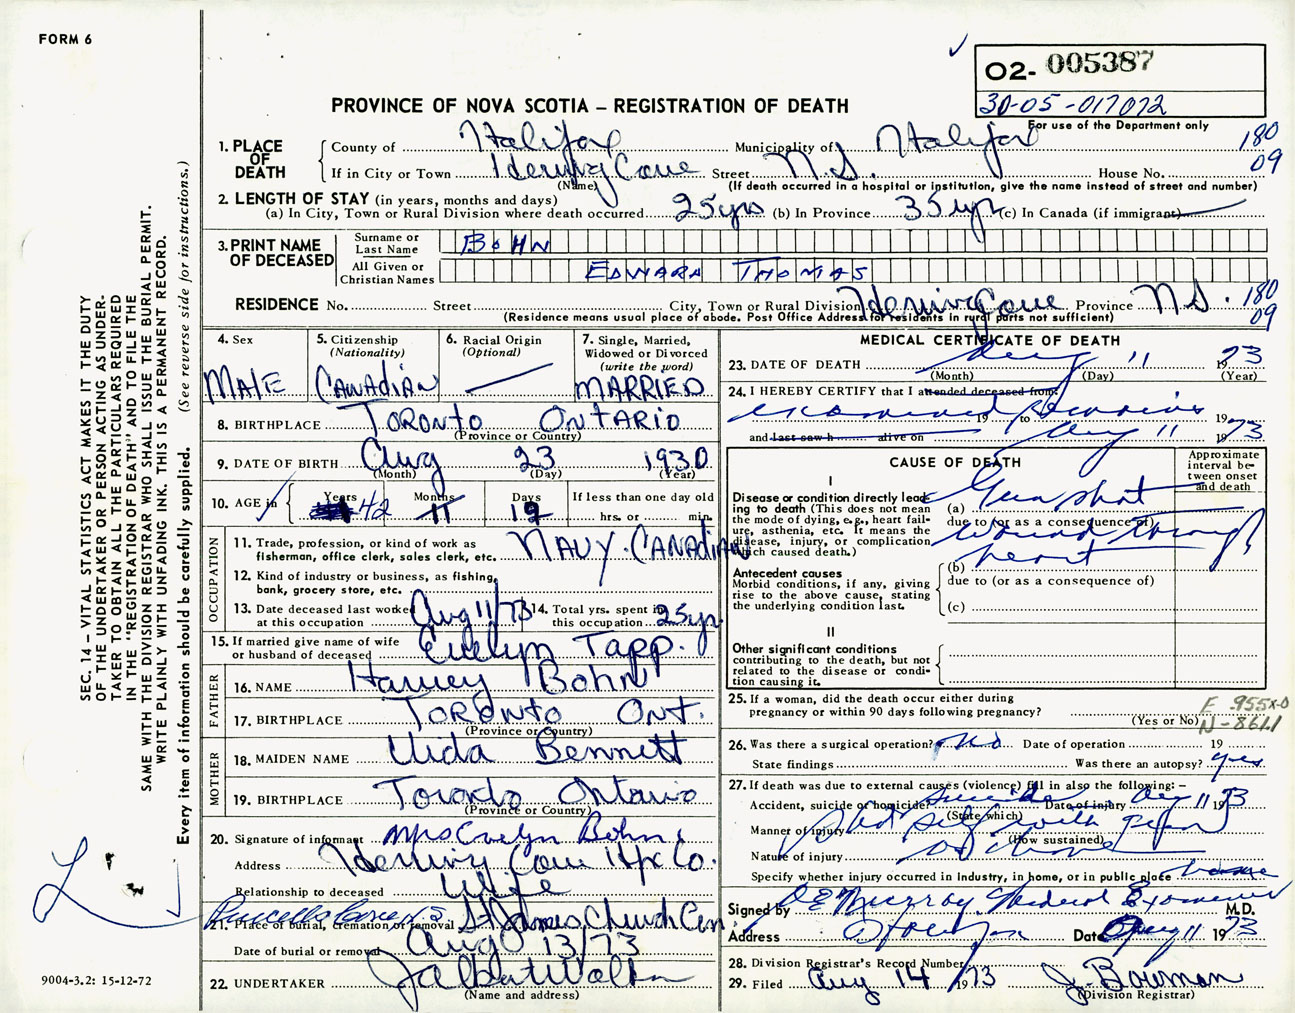 FORM 6
O2- 005387
30-05-017072
For use of the Department only
PROVINCE OF NOVA SCOTIA – REGISTRATION OF DEATH
180
09
1. PLACE OF DEATH
County of Halifax Municipality of Halifax
If in City or Town Herring Cove Street N.S. House No.
(Name) (If death occurred in a hospital or institution, give the name instead of street and number)
2. LENGTH OF STAY (in years, months and days)
(a) In City, Town or Rural Division where death occurred 25 yrs (b) In Province 35 yr (c) In Canada (if immigrant)
3. PRINT NAME OF DECEASED
Surname or Last Name BOHN
All Given or Christian Names EDWARD THOMAS
RESIDENCE No. Street City, Town or Rural Division Herring Cove Province N.S.
180
09
(Residence means usual place of abode. Post Office Address for residents in rural parts not sufficient)
4. Sex
MALE
5. Citizenship
(Nationality)
CANADIAN
6. Racial Origin
(Optional)
7. Single, Married, Widowed or Divorced
(write the word)
MARRIED
8. BIRTHPLACE TORONTO ONTARIO
(Province or Country)
9. DATE OF BIRTH Aug 23 1930
(Month) (Day) (Year)
10. AGE in Years 42 Months 11 Days 19 If less than one day old
hrs. or min.
OCCUPATION
11. Trade, profession, or kind of work as fisherman, office clerk, sales clerk, etc. NAVY. CANADIAN
12. Kind of industry or business, as fishing, bank, grocery store, etc.
13. Date deceased last worked at this occupation Aug 11/73
14. Total yrs. spent in this occupation 25 yr.
15. If married give name of wife or husband of deceased Evelyn Tapp.
FATHER
16. NAME Harvey Bohn
17. BIRTHPLACE TORONTO ONT.
(Province or Country)
MOTHER
18. MAIDEN NAME Bennett
19. BIRTHPLACE Toronto Ontario
(Province or Country)
20. Signature of informant Mrs Evelyn Bohn
Address Herring Cove Hfx Co.
Relationship to deceased Wife
21. Place of burial, cremation or removal Purcells Cove N.S. St James Church Cem.
Date of burial or removal Aug 13/73
22. UNDERTAKER J Albert Walker
(Name and address)
MEDICAL CERTIFICATE OF DEATH
23. DATE OF DEATH Aug 11 1973
(Month) (Day) (Year)
24. I HEREBY CERTIFY that I attended deceased from:
examined remains 19 to 19
and last saw h alive on Aug 11 1973
CAUSE OF DEATH
Approximate interval between onset and death
I
Disease or condition directly leading to death (This does not mean the mode of dying, e.g., heart failure, asthenia, etc. It means the disease, injury, or complication which caused death.)
(a) Gun shot
due to (or as a consequence of)
wound through
(b) heart
due to (or as a consequence of)
(c)
Antecedent causes
Morbid conditions, if any, giving rise to the above cause, stating the underlying condition last.
II
Other significant conditions
contributing to the death, but not related to the disease or condition causing it.
25. If a woman, did the death occur either during pregnancy or within 90 days following pregnancy?
(Yes or No)
N-861.1
26. Was there a surgical operation? No Date of operation 19
State findings Was there an autopsy? yes
27. If death was due to external causes (violence) fill in also the following: –
Accident, suicide or homicide? suicide Date of injury Aug 11 1973
(State which)
Manner of injury Shot self with gun
(How sustained)
Nature of injury at home
Specify whether injury occurred in Industry, in home, or in public place home
Signed by Medical Examiner M.D.
Address Date Aug 11 1973
28. Division Registrar's Record Number
29. Filed Aug 14 1973 J. Bowman
(Division Registrar)
SEC. 14 – VITAL STATISTICS ACT MAKES IT THE DUTY
OF THE UNDERTAKER OR PERSON ACTING AS UNDER-
TAKER TO OBTAIN ALL THE PARTICULARS REQUIRED
IN THE "REGISTRATION OF DEATH" AND TO FILE THE
SAME WITH THE DIVISION REGISTRAR WHO SHALL ISSUE THE BURIAL PERMIT.
WRITE PLAINLY WITH UNFADING INK. THIS IS A PERMANENT RECORD.
Every item of information should be carefully supplied. (See reverse side for instructions.)
9004-3.2: 15-12-72